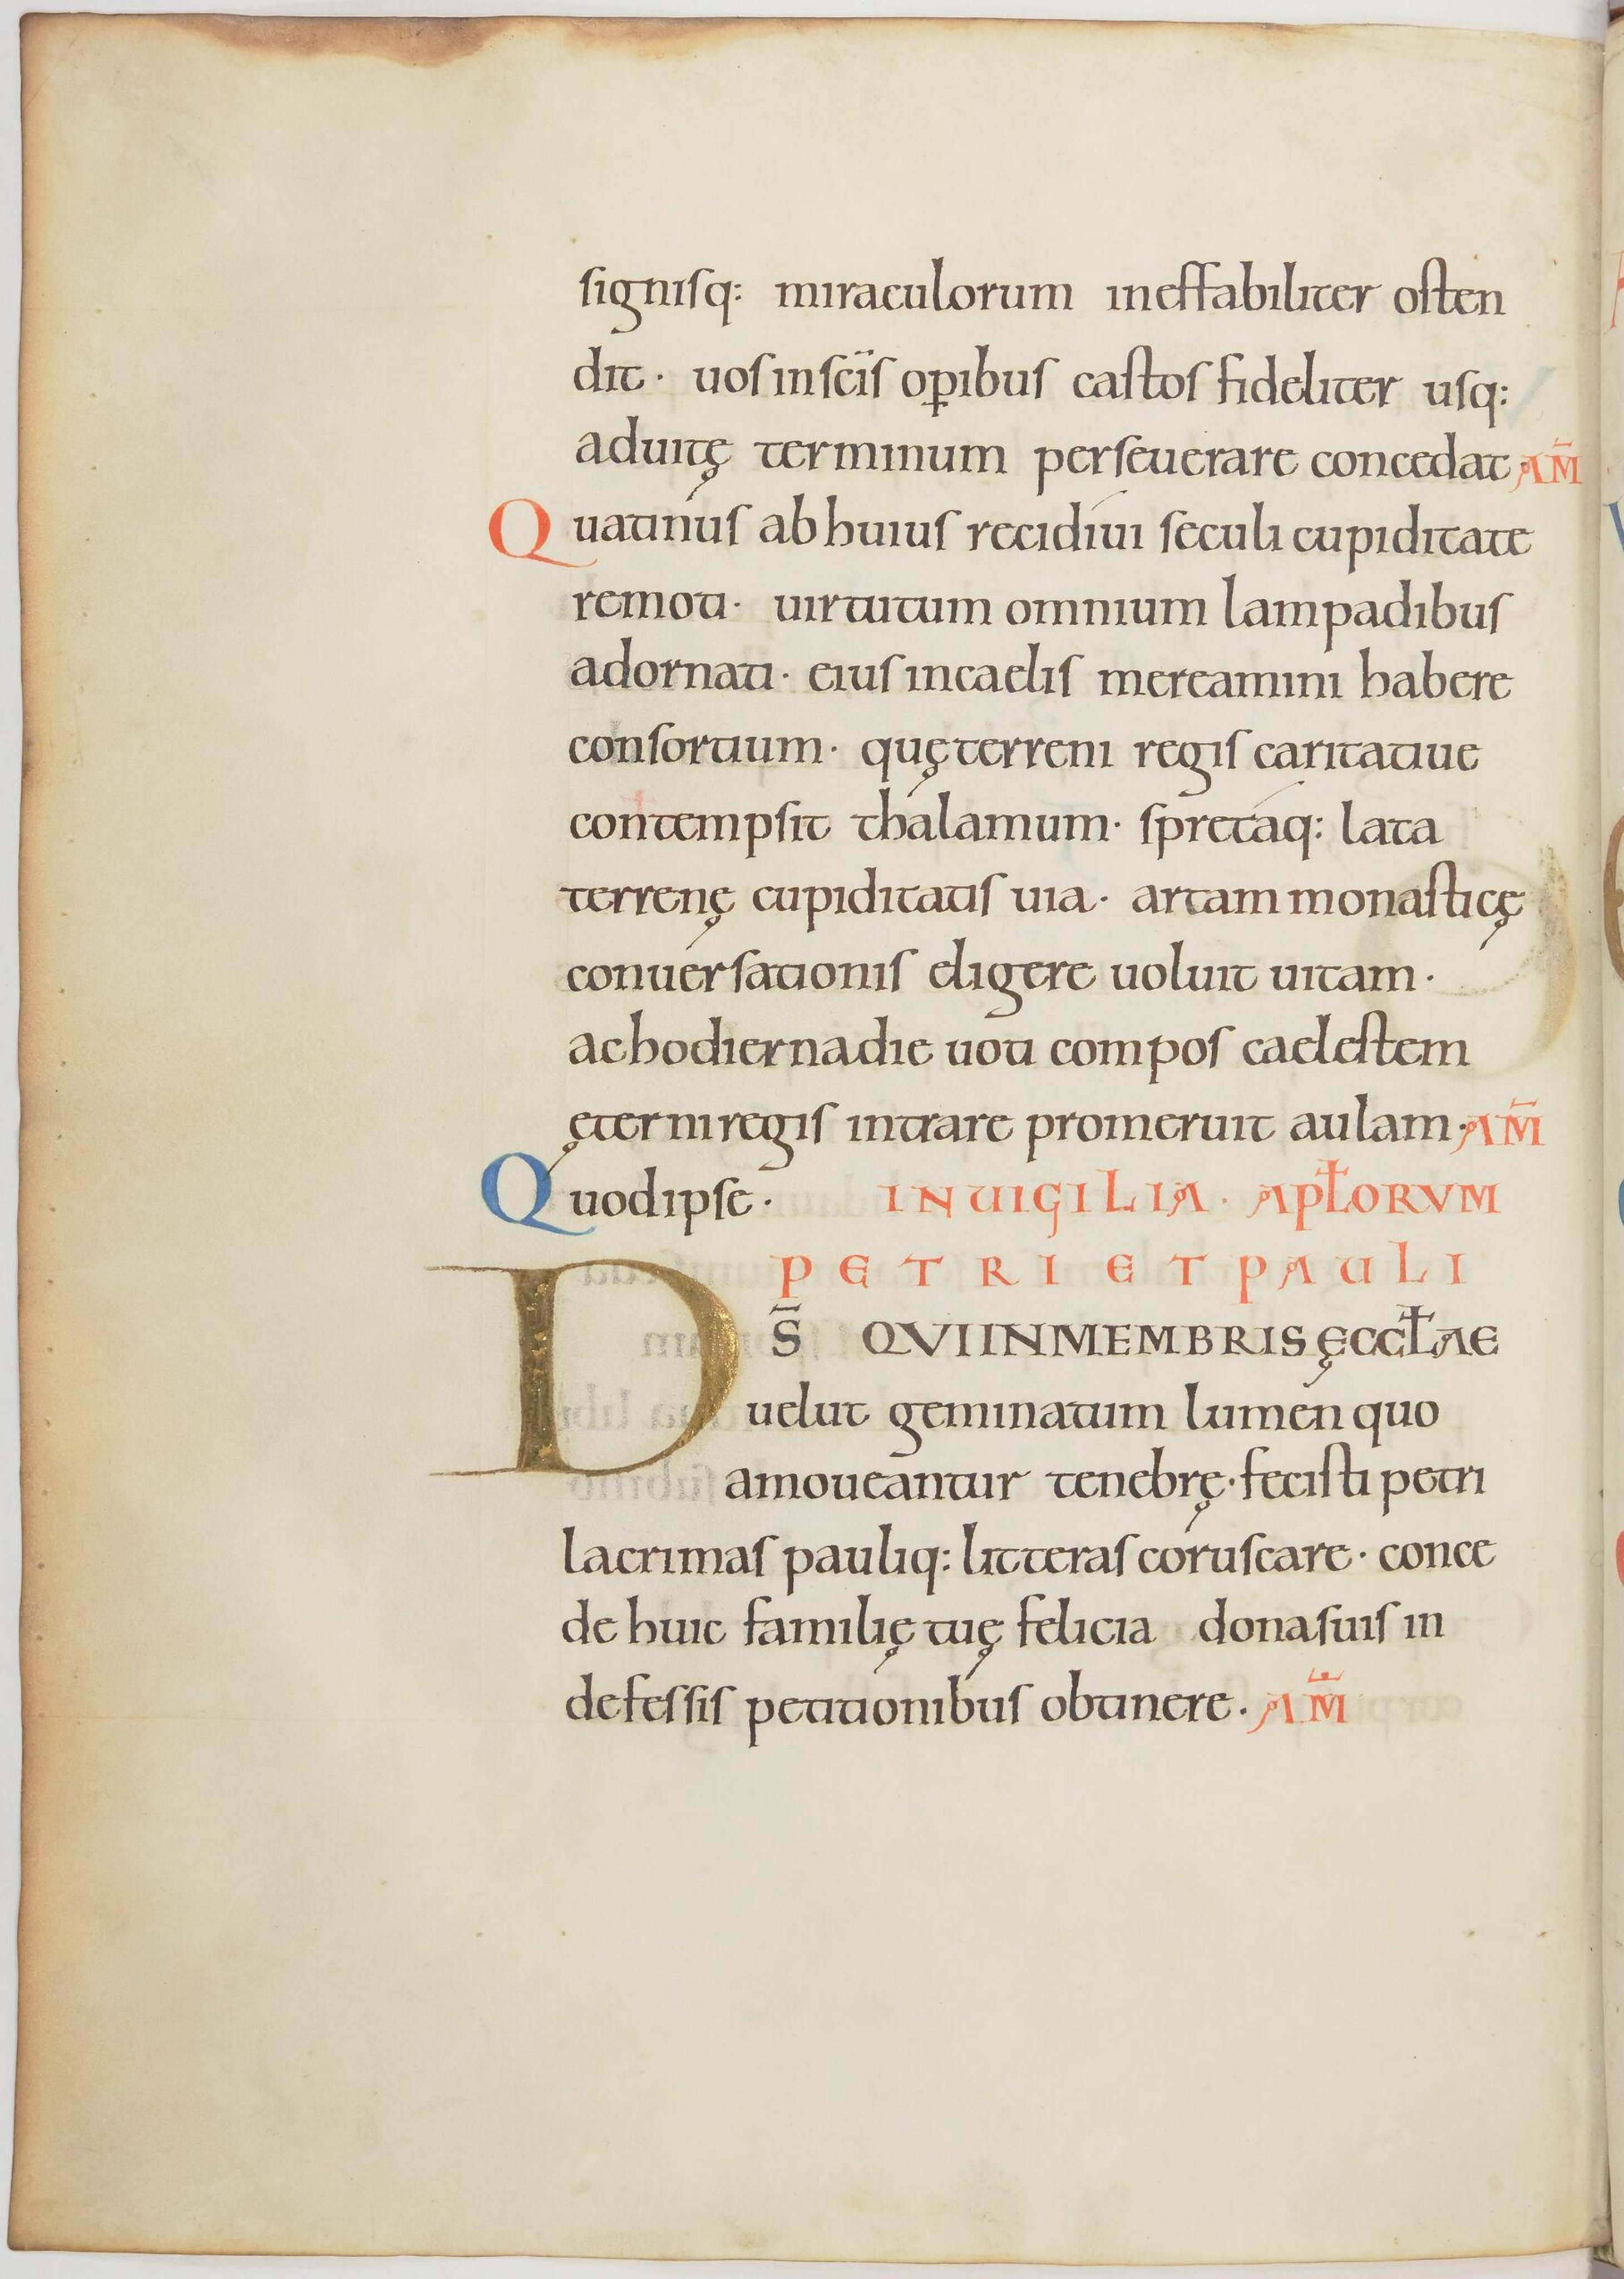 signisq: miraculorum ineffabiliter osten
dit · uos in sc̄is op̲ibus castos fideliter usq:
aduitę terminum perseuerare concedat · AM̄
Quatinus ab huius recidiui seculi cupiditate
remoti · uirtutum omnium lampadibus
adornati · eius incaelis mereamini habere
consortium · quę terreni regis caritatiue
contempsit thalamum · spretaq: lata
terrenę cupiditatis uia · artam monasticę
conuersationis eligere uoluit uitam ·
ac hodierna die uoti compos caelestem
ęterni regis intrare promeruit aulam · AM̄
Quod ipse · IN UIGILIA · APƚORVM
PETRI ET PAULI
DS̄ QVI IN MEMBRIS ĘCCƚAE
uelut geminatum lumen quo
amoueantur tenebrę · fecisti petri
lacrimas pauliq: litteras coruscare · conce
de huic familię tuę felicia dona suis in
defessis petitionibus obtinere · AM̄